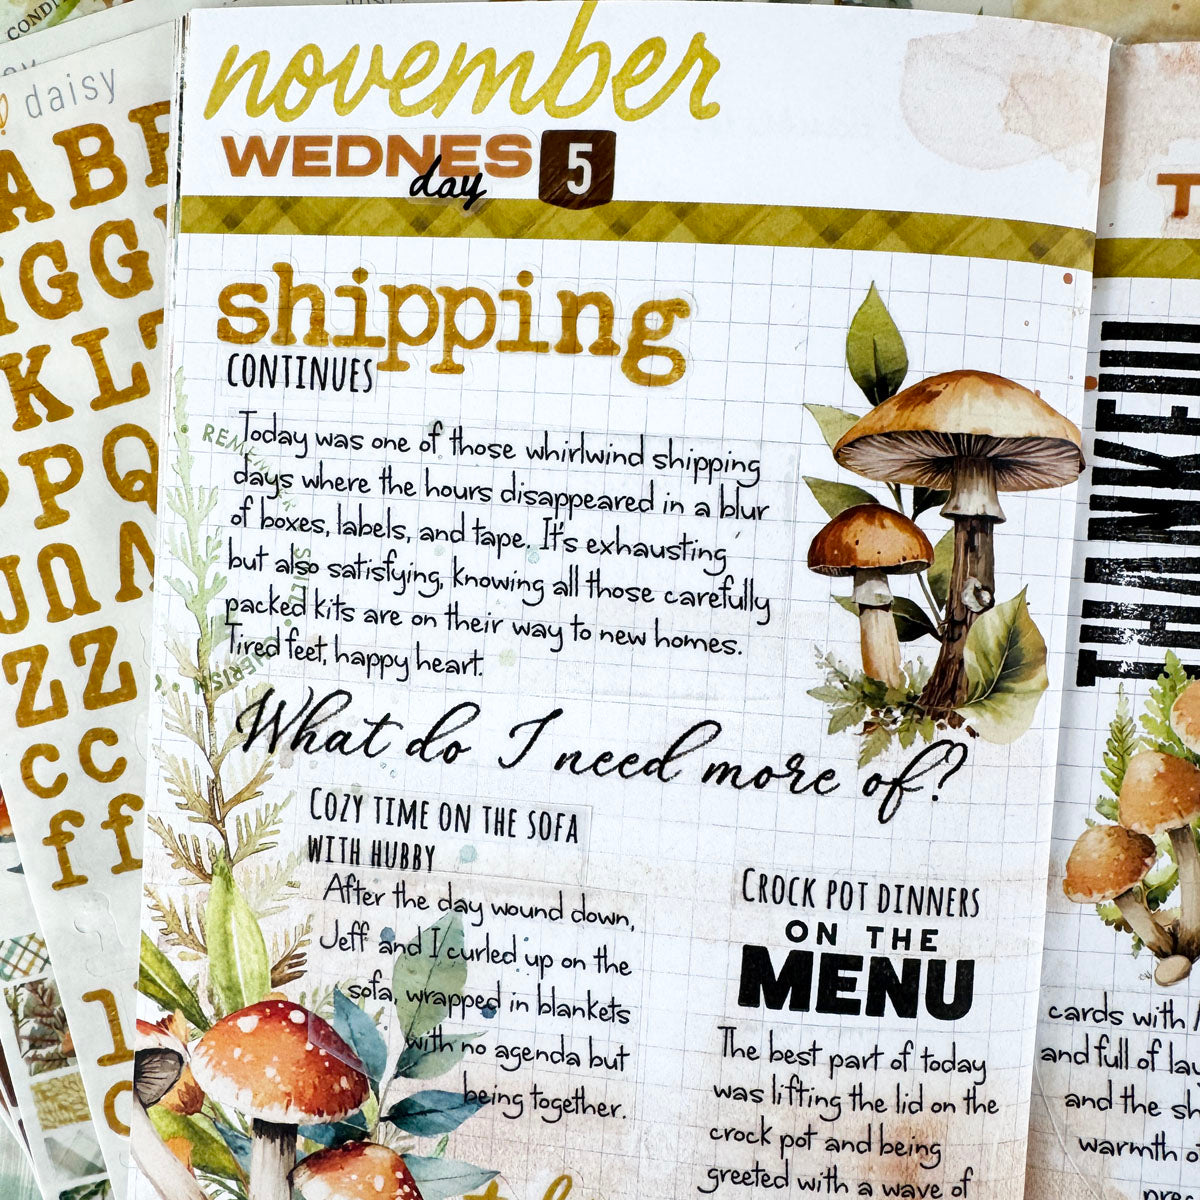 COND
daisy
ABE
GG
KL
PQ
ZZ
cc
ff
november
WEDNES
day
5
shipping
CONTINUES
Today was one of those whirlwind shipping
days where the hours disappeared in a blur
of boxes, labels, and tape. It's exhausting
but also satisfying, knowing all those carefully
packed kits are on their way to new homes.
Tired feet, happy heart.
What do I need more of?
COZY TIME ON THE SOFA
WITH HUBBY
After the day wound down,
Jeff and I curled up on the
sofa, wrapped in blankets
with no agenda but
being together.
CROCK POT DINNERS
ON THE
MENU
The best part of today
was lifting the lid on the
crock pot and being
greeted with a wave of
T
THANKFUL
cards with
and full of
and the
warmth